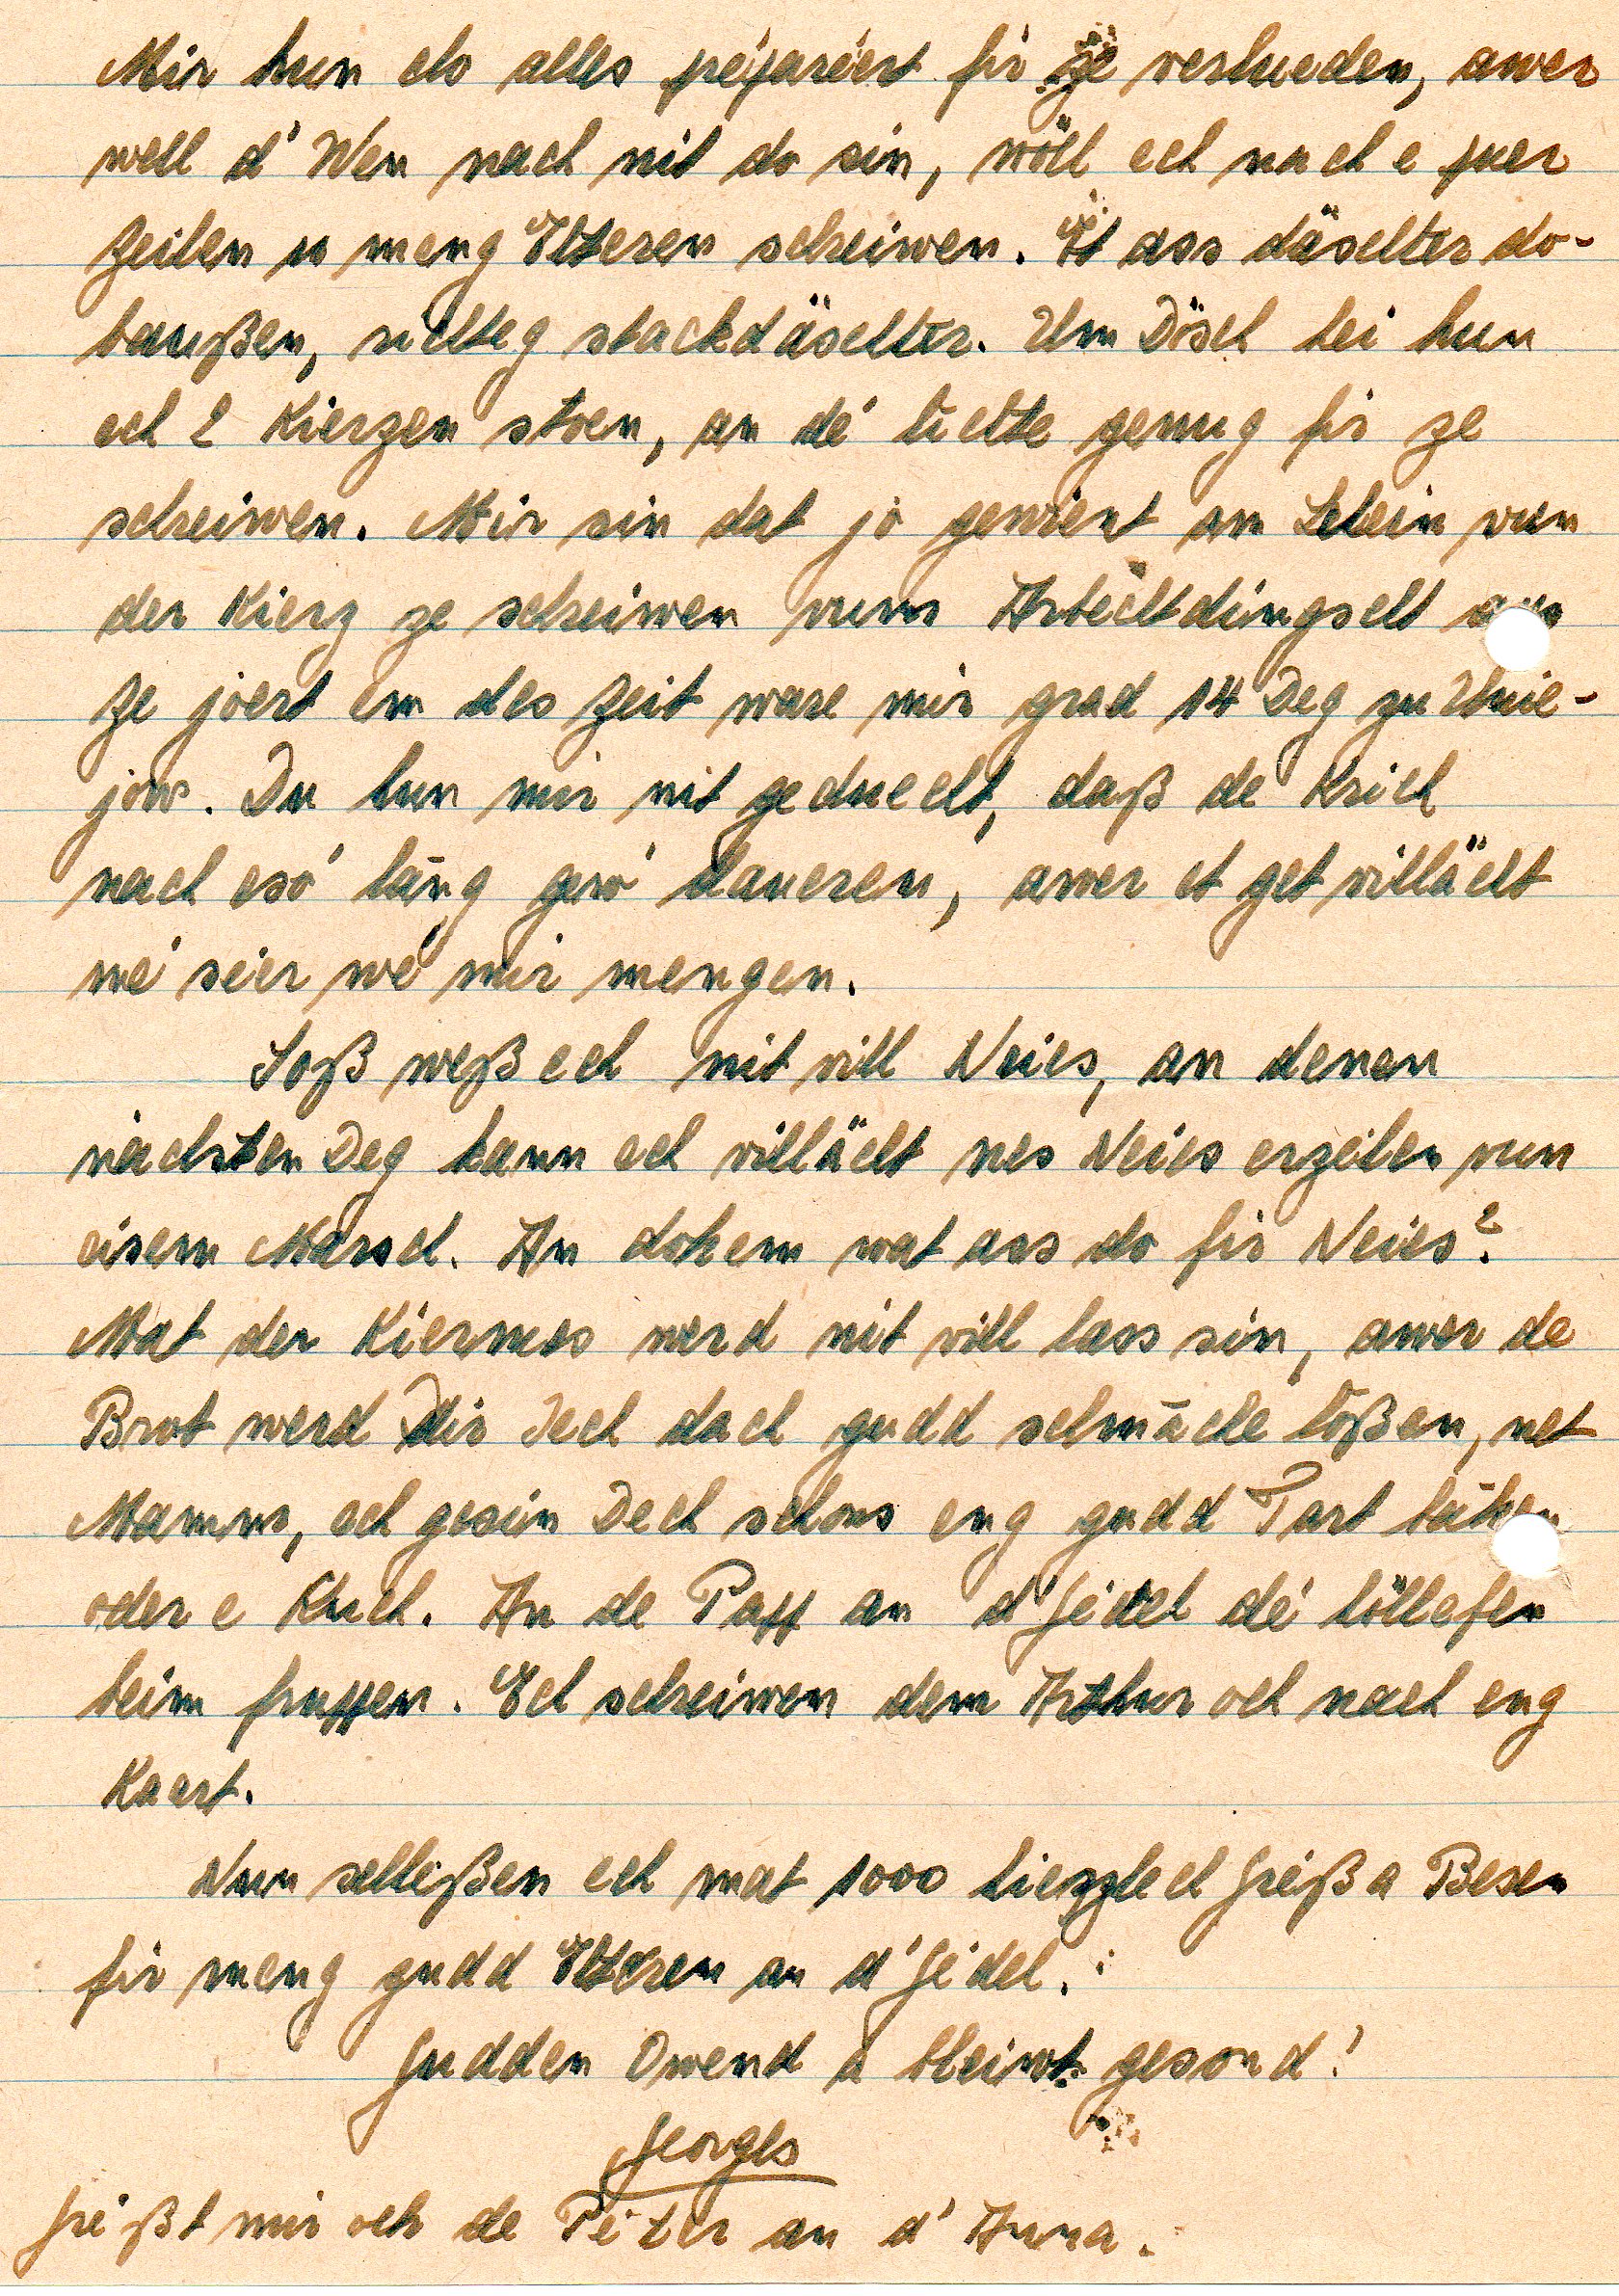 Mir hun elo alles préparéert fir ze verlueden, awer
well d' Wen nach nit do sin, wöll ech nach e puer
Zeilen u meng Elteren schreiwen. Et ass däischter do-
baußen, richteg stackdäischter. Um Dösch hei hun
ech 2 Kierzen stoen, an dé liichte genug fir ze
schreiwen. Mir sin dat jo gewient am Schein vun
der Kierz ze schreiwen vum Arbechtdingscht aus
Ze joert em des Zeit ware mir grad 14 Deg zu Unie-
jow. Du hun mir nit geduecht, daß de Krich
nach esó lang gew daueren, awer et get villächt
mé séier wé mir mengen.
Soß weß ech nit vill Neies, an denen
nächsten Deg kann ech villächt nes Neies erzeilen vun
eisem Marsch. An dohem wat ass do fir Neies?
Mat der Kiermes werd nit vill lass sin, awer de
Brot werd Dir Iech dach gudd schmäche loßen, net
Mamm, ech gesin Dech schons eng gudd Tart bäken
oder e Kuch. An de Papp an d'Gédel dé höllefen
beim fruppen. Ech schreiwen dem Arthur och nach eng
Kaert.
Nun schleißen ech mat 1000 hierzlech Gréiß a Besen
fir meng gudd Elteren an d'Gédel.
Gudden Owend a bleiwt gesond!
Georges
Gréßt mir och de Péter an d' Anna.